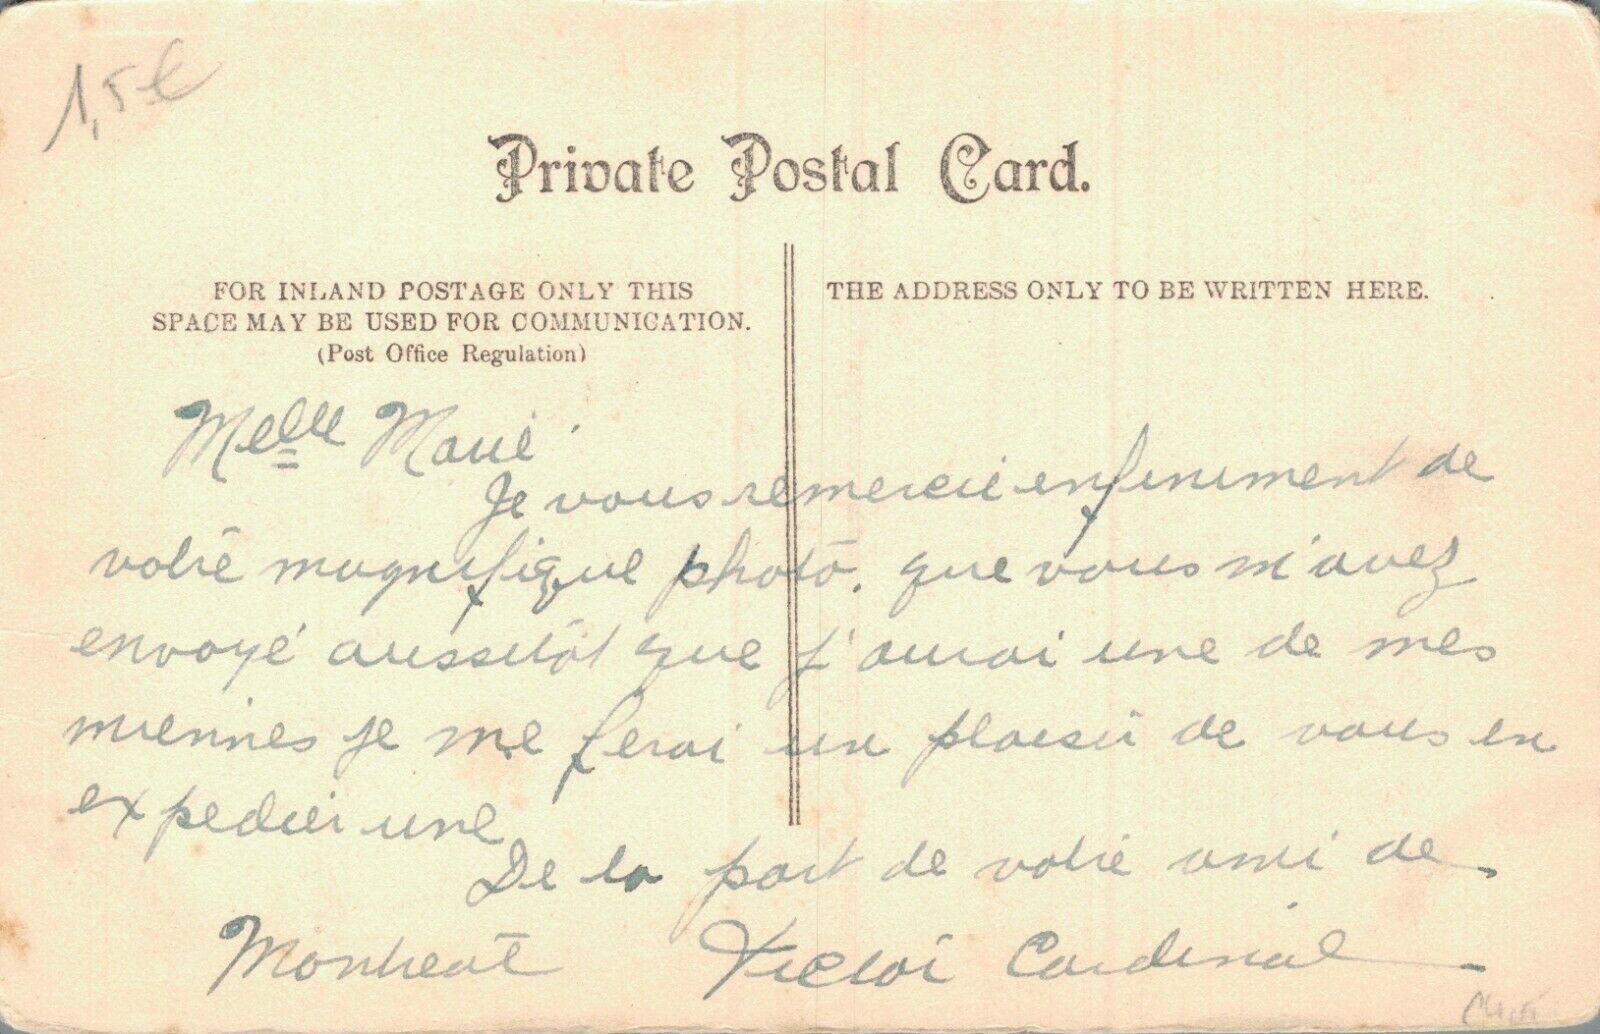 1,5€
Private Postal Card.
FOR INLAND POSTAGE ONLY THIS
SPACE MAY BE USED FOR COMMUNICATION.
(Post Office Regulation)
THE ADDRESS ONLY TO BE WRITTEN HERE.
Melle Marie
Je vous remercie enfiniment de
votre magnifique photo. que vous m'avez
envoyé aussitôt que j'aurai une de mes
miennes je me ferai un plaisir de vous en
expedier une
De la part de votre ami de
Montreal Victor Cardinal